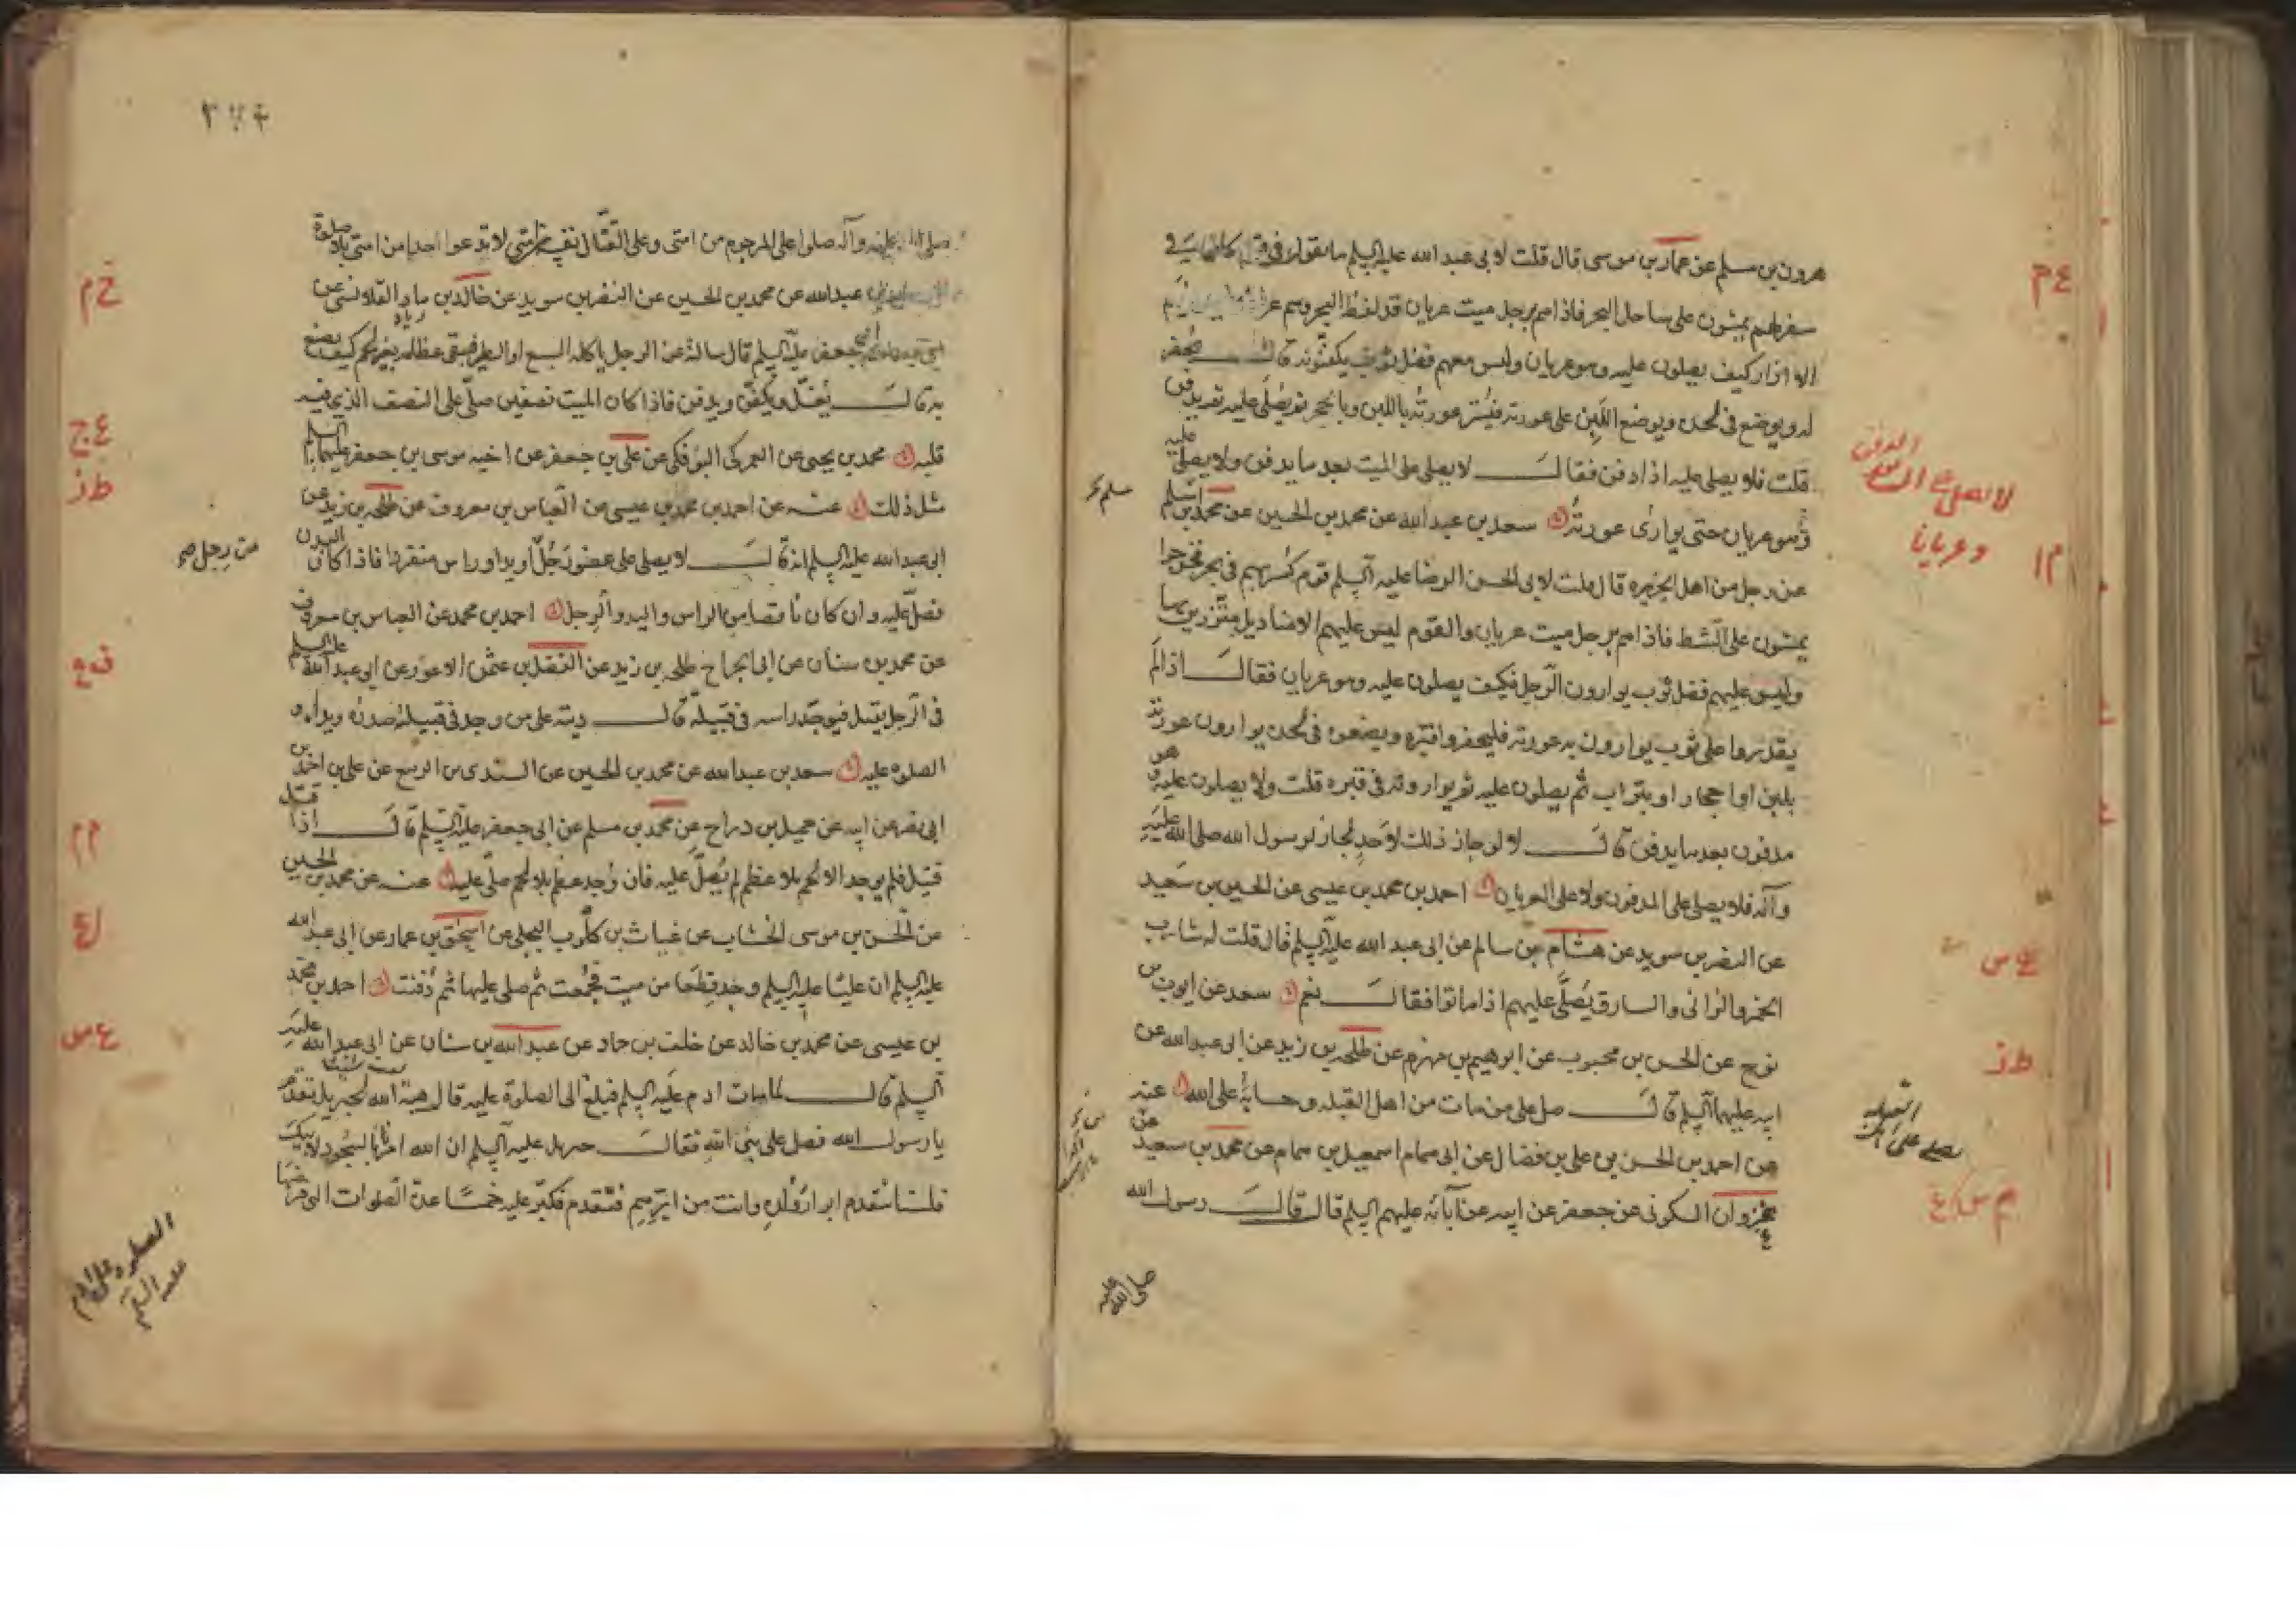 هرون بن مسلم عن عمار بن موسى قال قلت لابى عبد الله عليه السلم ما يقول فى قوم كانوا فى
سفر لهم يمشون على ساحل البحر فاذا هم برجل ميت عريان قد لفظه البحر وهم عراة ليس معهم
الا ازار كيف يصلون عليه وهو عريان وليس معهم فضل ثوب يكفنونه قال يحفر
له ويوضع فى لحده ويوضع اللبن على عورته فيستر عورته باللبن وبالحجر ثم يصلى عليه ثم يدفن
قلت فلا يصلى عليه اذا دفن فقال لا يصلى على الميت بعد ما يدفن ولا يصلى عليه
وهو عريان حتى يوارى عورته سعد بن عبد الله عن محمد بن الحسين عن محمد بن اسلم
عن رجل من اهل الجزيره قال قلت لابى الحسن الرضا عليه السلم قوم كسر بهم فى بحر فخرجوا
يمشون على الشط فاذا هم برجل ميت عريان والقوم ليس عليهم الا مناديل متزرين بها
وليس عليهم فضل ثوب يوارون الرجل فكيف يصلون عليه وهو عريان فقال اذا لم
يقدروا على ثوب يوارون به عورته فليحفروا قبره ويضعوه فى لحده يوارون عورته
بلبن او احجار او بتراب ثم يصلون عليه ثم يوارونه فى قبره قلت ولا يصلون عليه وهو
مدفون بعد ما يدفن قال لا لو جاز ذلك لاحد لجاز لرسول الله صلى الله عليه
وآله فلا يصلى على المدفون ولا على العريان احمد بن محمد بن عيسى عن الحسين بن سعيد
عن النضر بن سويد عن هشام بن سالم عن ابى عبد الله عليه السلم قال قلت له شارب
الخمر والزانى والسارق يصلى عليهم اذا ماتوا فقال نعم سعد عن ايوب بن
نوح عن الحسن بن محبوب عن ابرهيم بن مهزم عن طلحه بن زيد عن ابى عبد الله عن
ابيه عليهما السلم قال صل على من مات من اهل القبله وحسابه على الله عنه
عن احمد بن الحسن بن على بن فضال عن ابى همام اسمعيل بن همام عن محمد بن سعيد عن
غزوان السكونى عن جعفر عن ابيه عن آبائه عليهم السلم قال قال رسول الله
صلى الله عليه
ع م
لا يصلى على المدفون
وعريانا
م ا
مسلم
ع س
ط ز
يصلى على اهل القبله
م س ع
صلى الله عليه وآله صلوا على المرجوم من امتى وعلى القتال نفسه من امتى لا تدعوا احدا من امتى بلا صلوة
عبد الله عن محمد بن الحسين عن النضر بن سويد عن خالد بن ماد القلانسى عن
جعفر عليه السلم قال سالته عن الرجل ياكله السبع او الطير فيبقى عظامه بغير لحم كيف يصنع
به قال يغسل ويكفن ويدفن فاذا كان الميت نصفين صلى على النصف الذى فيه
قلبه محمد بن يحيى عن العمركى البوفكى عن على بن جعفر عن اخيه موسى بن جعفر عليهما السلم
مثل ذلك عنه عن احمد بن محمد بن عيسى عن العباس بن معروف عن طلحه بن زيد عن
ابى عبد الله عليه السلم انه قال لا يصلى على عضو رجل او يد او راس منفردا فاذا كان البدن
فصل عليه وان كان ناقصا من الراس واليد والرجل احمد بن محمد عن العباس بن معروف
عن محمد بن سنان عن ابى الجراح طلحه بن زيد عن الفضل بن عثمن الاعور عن ابى عبد الله عليه السلم
فى الرجل يقتل فيوجد راسه فى قبيلة قال ديته على من وجد فى قبيلته صدره ويداه و
الصلوه عليه سعد بن عبد الله عن محمد بن الحسين عن السندى بن الربيع عن على بن احمد بن
ابى نصر عن ابيه عن جميل بن دراج عن محمد بن مسلم عن ابى جعفر عليه السلم قال اذا قتل
قتيل فلم يوجد الا لحم بلا عظم لم يصل عليه فان وجد عظم بلا لحم صلى عليه عنه عن محمد بن الحسين
عن الحسن بن موسى الخشاب عن غياث بن كلوب البجلى عن اسحق بن عمار عن ابى عبد الله
عليه السلم ان عليا عليه السلم وجد قطعا من ميت فجمعت ثم صلى عليها ثم دفنت احمد بن محمد
بن عيسى عن محمد بن خالد عن خلف بن حماد عن عبد الله بن سنان عن ابى عبد الله عليه
السلم قال لما مات ادم عليه السلم فبلغ الى الصلوة عليه قال هبة الله لجبريل تقدم
يا رسول الله فصل على نبى الله فقال جبريل عليه السلم ان الله امرنا بالسجود لابيك
فلسنا نتقدم ابرار ولده وانت من ابرهم فتقدم فكبر عليه خمسا عدة الصلوات التى فرضها
خ م
ع ج
ط ز
من رجل
ف ع
م م
ا ع
ع س
الصلوه على ادم
عليه السلم